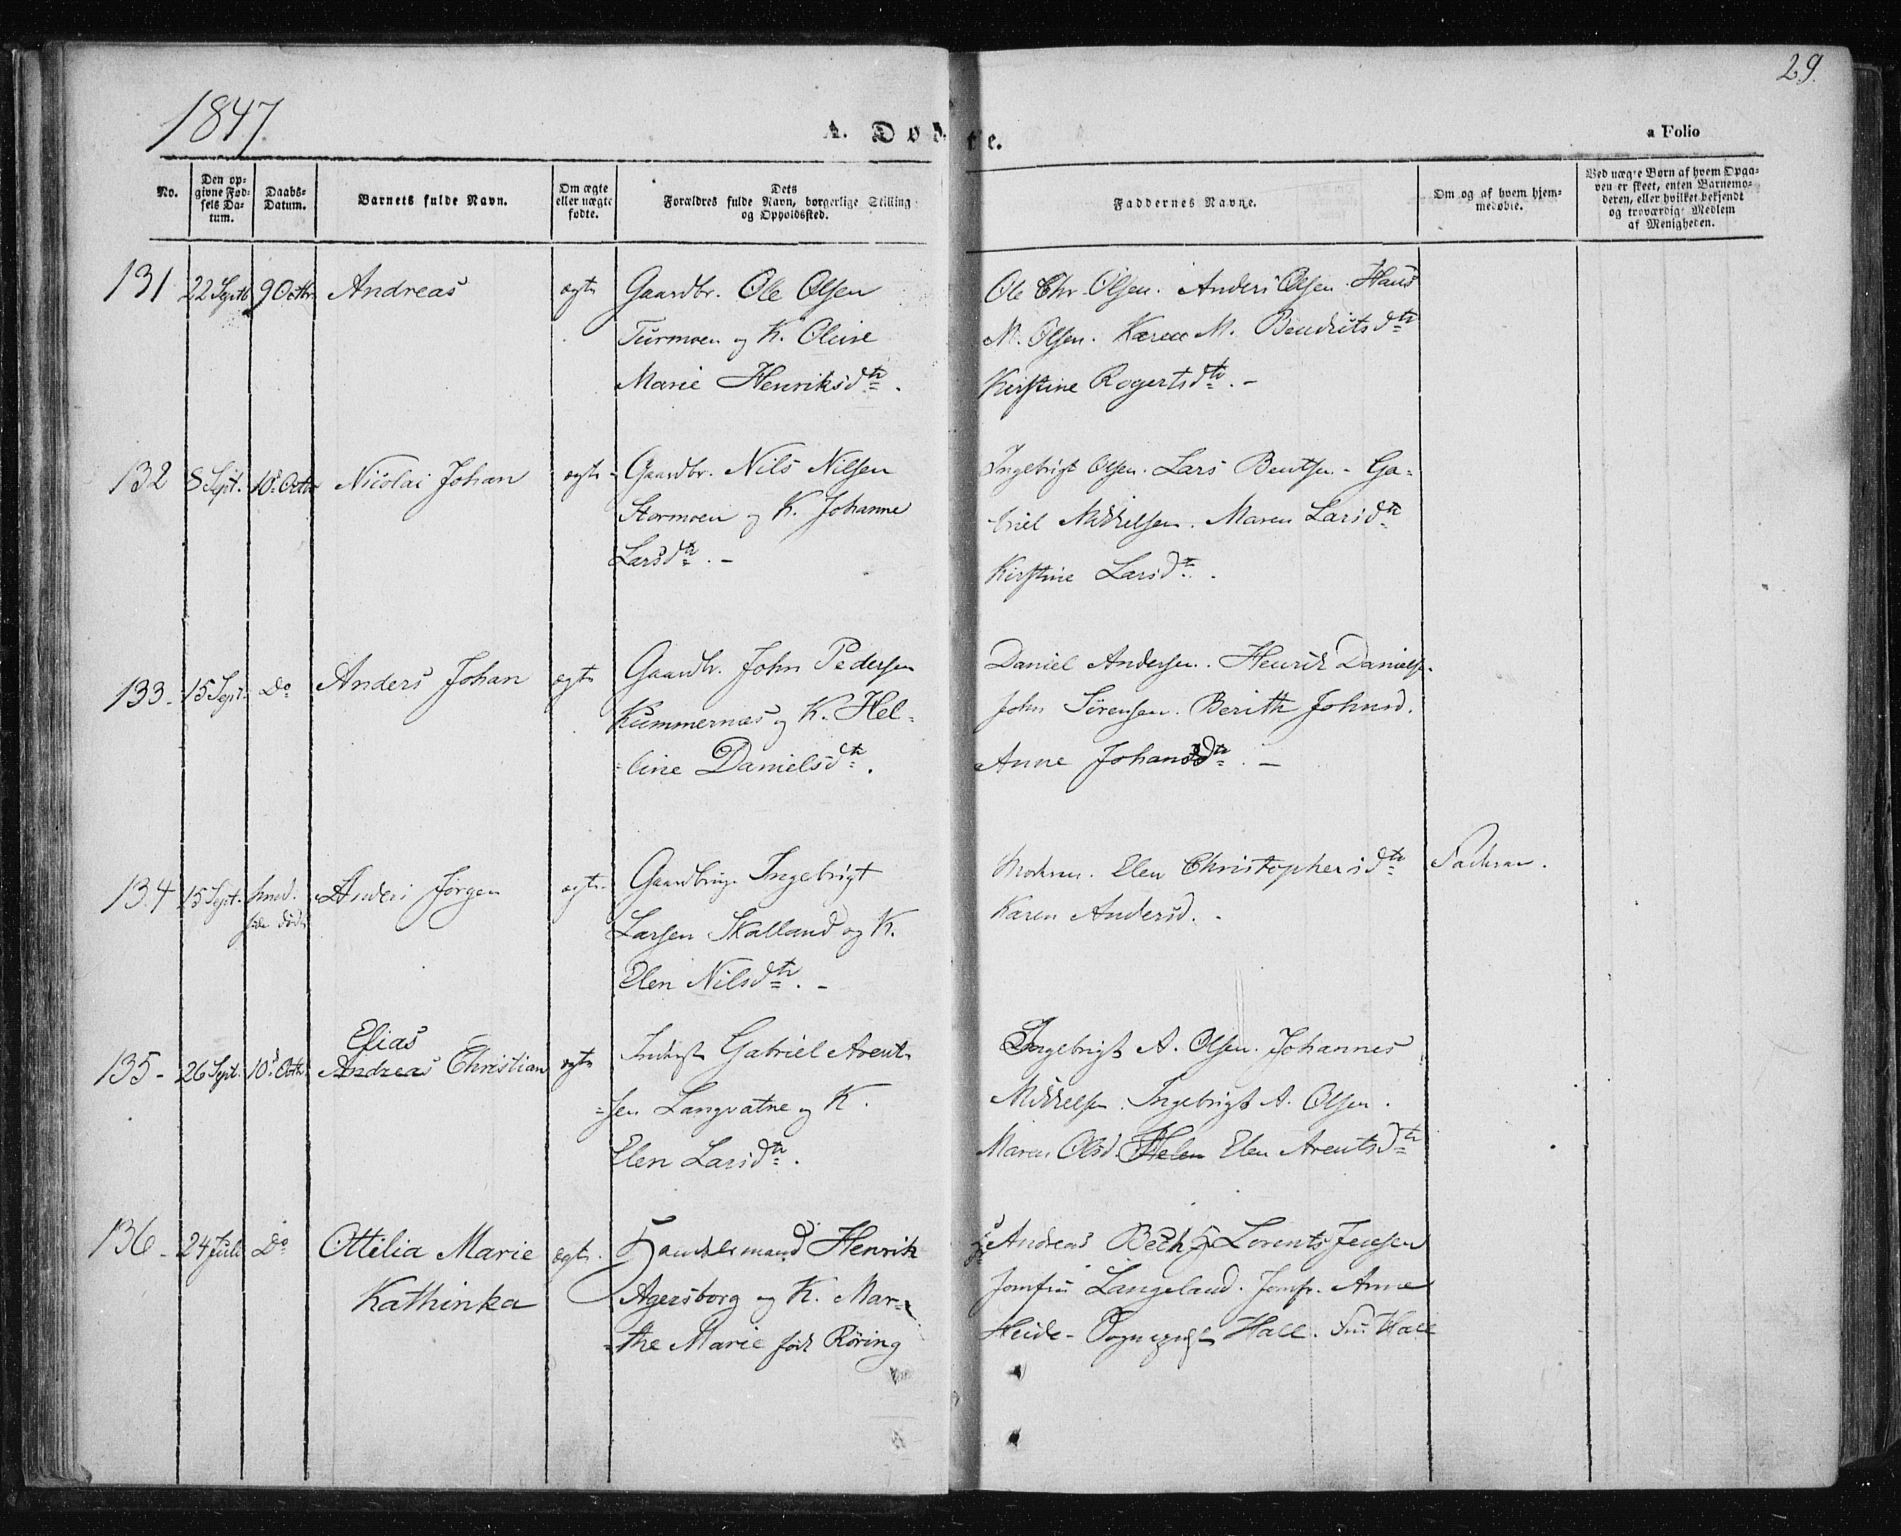 1847.
29.
A. Døbte.
a Folio
No.
Den op-
givne Fød-
sels Da-
tum.
Daabs-
Datum.
Barnets fulde Navn.
Om ægte
eller uægte
fødte.
Dets
Forældres fulde Navn, borgerlige Stilling
og Opholdssted.
Faddernes Navne.
Om og af hvem hjem-
medøbte.
Ved uægte Børn af hvem Opga-
ven er skeet, enten Barnemo-
deren, eller hvilket bekjendt
og troværdigt Medlem
af Menigheden.
131 22 Septb 9 Octbr Andreas ægte
Gaardbr. Ole Olsen
Turmoen og K. Oline
Marie Henriksdtr.
Ole Chr. Olsen. Anders Olsen. Hans
M. Olsen. Karen M. Bendritsdtr
Kirstine Rogertsdtr. -
132 8 Sept. 10d Octbr Nicolai Johan ægte
Gaardbr. Nils Nilsen
Stormoen og K. Johanne
Larsdtr. -
Ingebrigt Olsen. Lars Bentsen - Ga-
briel Mikkelsen. Maren Larsdtr
Kirstine Larsdtr.
133 - 15 Sept. Do Anders Johan ægte
Gaardbr. John Pedersen
Kummernæs og K. Hel-
-line Danielsdtr.
Daniel Andersen. Henrik Danielsn.
John Sørensen. Berith Johnsd.
Anne Johansdtr. -
134 15 Sept. Anders Jørgen ægte
Gaardbrug. Ingebrigt
Larsen Skalland og K.
Elen Nilsdtr. -
Modren. Elen Christophersdtr
Karen Andersd. -
Fadren.
135 - 26 Sept. 10d Octbr Elias
Andreas Christian ægte
Inderst Gabriel Arent-
-sen Langvatne og K.
Elen Larsdtr.
Ingebrigt A. Olsen. Johannes
Mikkelsen. Ingebrigt A. Olsen.
Maren Olsd. Helen Elen Arentsdtr
136 - 24 Juli Do Ottilia Marie
Kathinka ægte
Handelsmand Henrik
Agersborg og K. Mar-
-the Marie fød Røring
Andreas Bech Lorents Jensen
Jomfru Langeland. Jomfr. Anne
Heide - Hall. Fru Hall